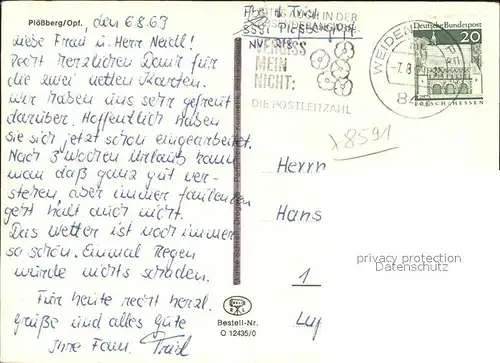 Plößberg/Opf.
den 6.8.69
Liebe Frau u. Herr Neidl!
Recht herzlichen Dank für
die zwei netten Karten.
Wir haben uns sehr gefreut
darüber. Hoffentlich haben
Sie sich jetzt schon eingearbeitet.
Nach 3 Wochen Urlaub kann
man daß ganz gut ver-
stehen, aber immer faulenzen
geht halt auch nicht.
Das Wetter ist noch immer
so schön. Einmal Regen
würde nichts schaden.
Für heute recht herzl.
Grüße und alles Gute
Ihre Fam. Trisl
VERGISS
MEIN
NICHT:
DIE POSTLEITZAHL
WEIDEN
Deutsche Bundespost
20
LORSCH/HESSEN
8591
Herrn
Hans
1
privacy protection
Datenschutz
Bestell-Nr.
O 12435/0